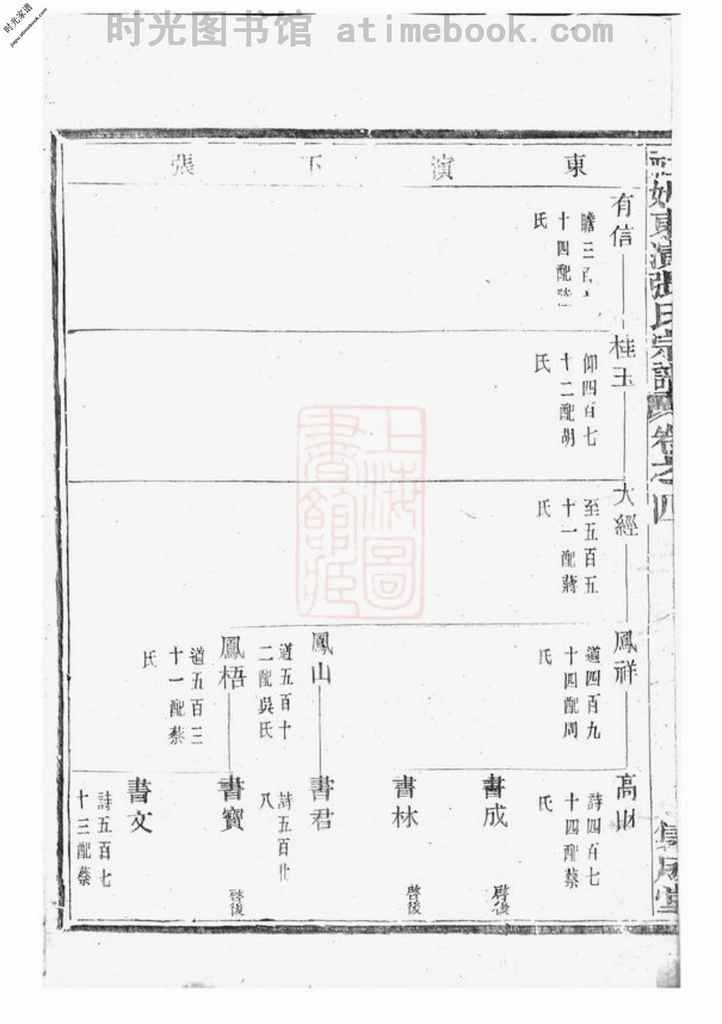 时光图书馆 atimebook.com
时光家谱
jiapu.atimebook.com
東演下張
東演張氏宗譜
卷之四
有信
瞻三
十四配
氏
桂玉
仰四百七
十二配胡
氏
大經
至五百五
十一配蔣
氏
鳳祥
道四百九
十四配周
氏
鳳山
道五百十
二配吳氏
鳳梧
道五百三
十一配蔡
氏
高財
詩四百七
十四配蔡
氏
書成
啓後
書林
啓後
書君
詩五百廿
八
書寶
啓後
書文
詩五百七
十三配蔡
上海圖
書館藏